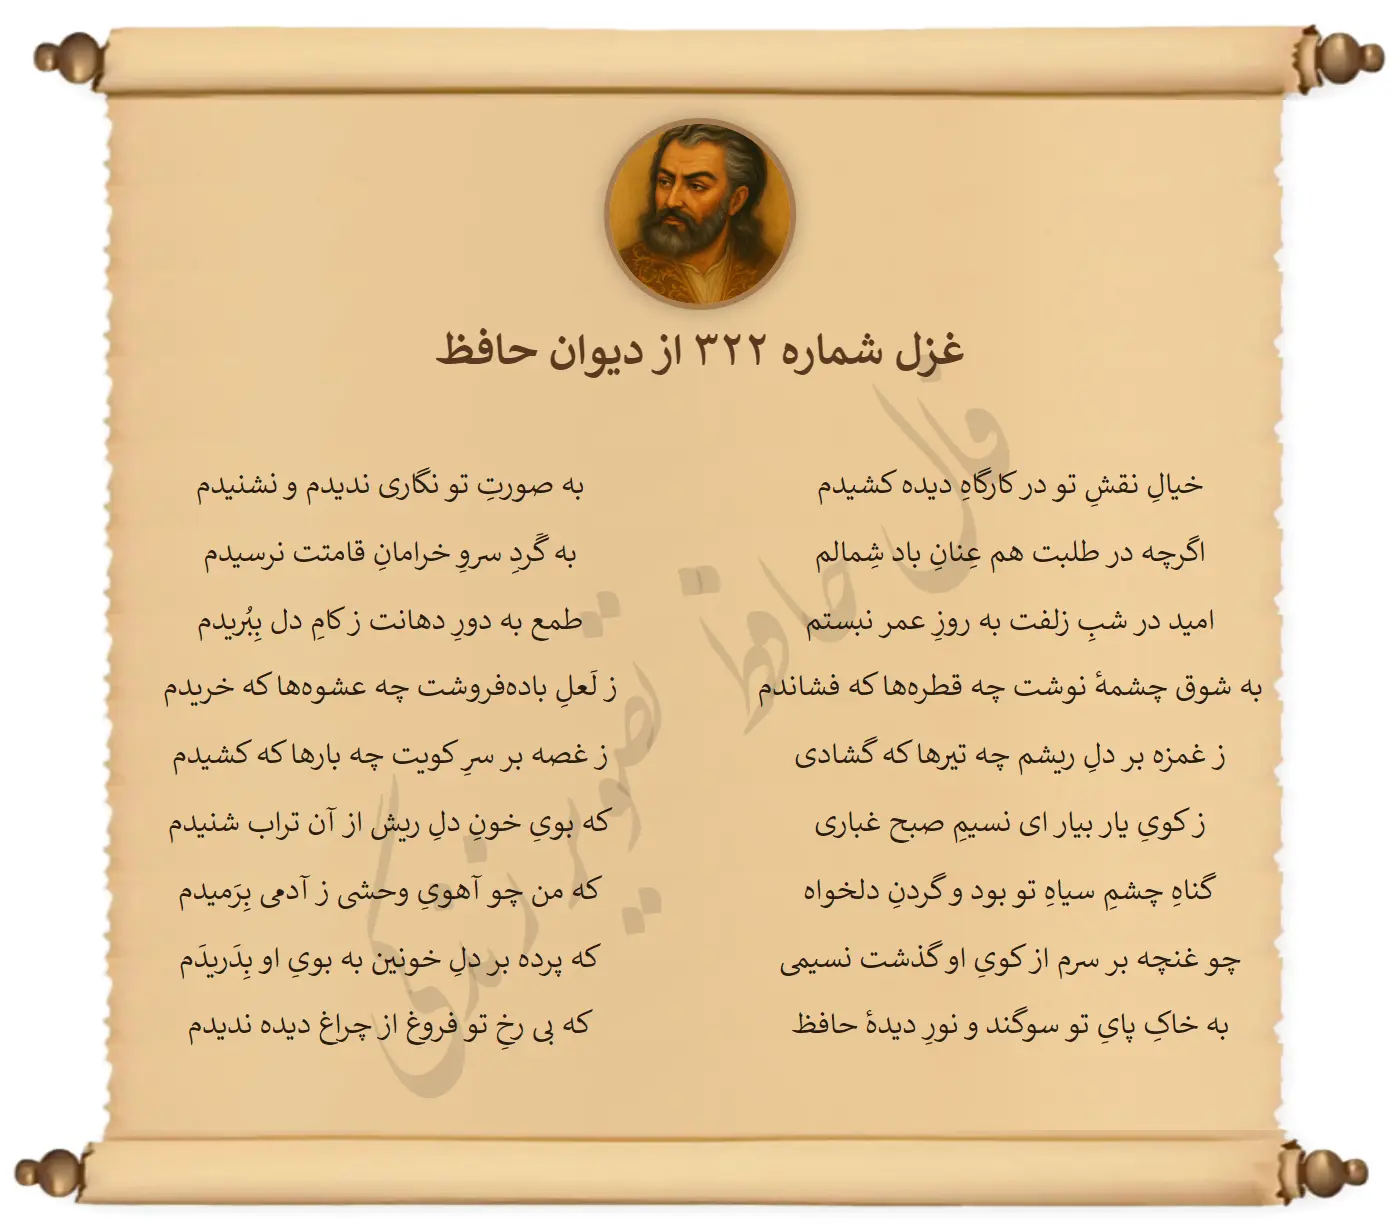 غزل شماره ۳۲۲ از دیوان حافظ
خیالِ نقشِ تو در کارگاهِ دیده کشیدم
به صورتِ تو نگاری ندیدم و نشنیدم
اگرچه در طلبت هم عِنانِ باد شِمالم
به گَردِ سروِ خرامانِ قامتت نرسیدم
امید در شبِ زلفت به روزِ عمر نبستم
طمع به دورِ دهانت ز کامِ دل بِبُریدم
به شوق چشمهٔ نوشت چه قطره‌ها که فشاندم
ز لَعلِ باده‌فروشت چه عشوه‌ها که خریدم
ز غمزه بر دلِ ریشم چه تیرها که گشادی
ز غصه بر سرِ کویت چه بارها که کشیدم
ز کویِ یار بیار ای نسیمِ صبح غباری
که بویِ خونِ دلِ ریش از آن تراب شنیدم
گناهِ چشمِ سیاهِ تو بود و گردنِ دلخواه
که من چو آهویِ وحشی ز آدمی بِرَمیدم
چو غنچه بر سرم از کویِ او گذشت نسیمی
که پرده بر دلِ خونین به بویِ او بِدَریدَم
به خاکِ پایِ تو سوگند و نورِ دیدهٔ حافظ
که بی رخِ تو فروغ از چراغ دیده ندیدم
فال حافظ تصویر زندگی